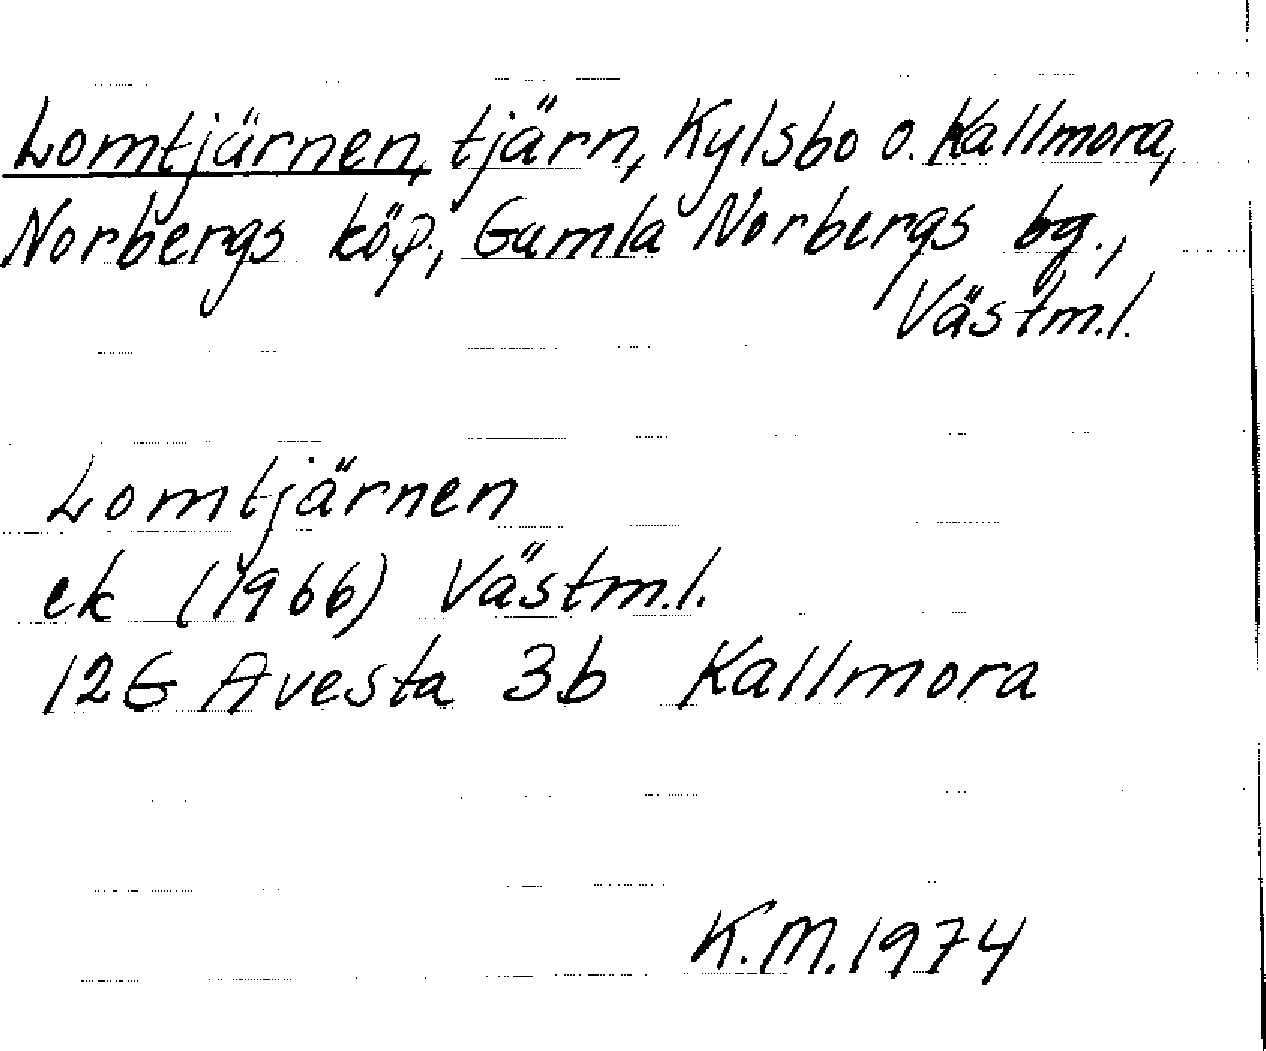 Lomtjärnen, tjärn, Kylsbo o. Kallmora,
Norbergs köp., Gamla Norbergs bg.,
Västm.l.
Lomtjärnen
ek (1966) Västm.l.
12G Avesta 3b Kallmora
K.M.1974